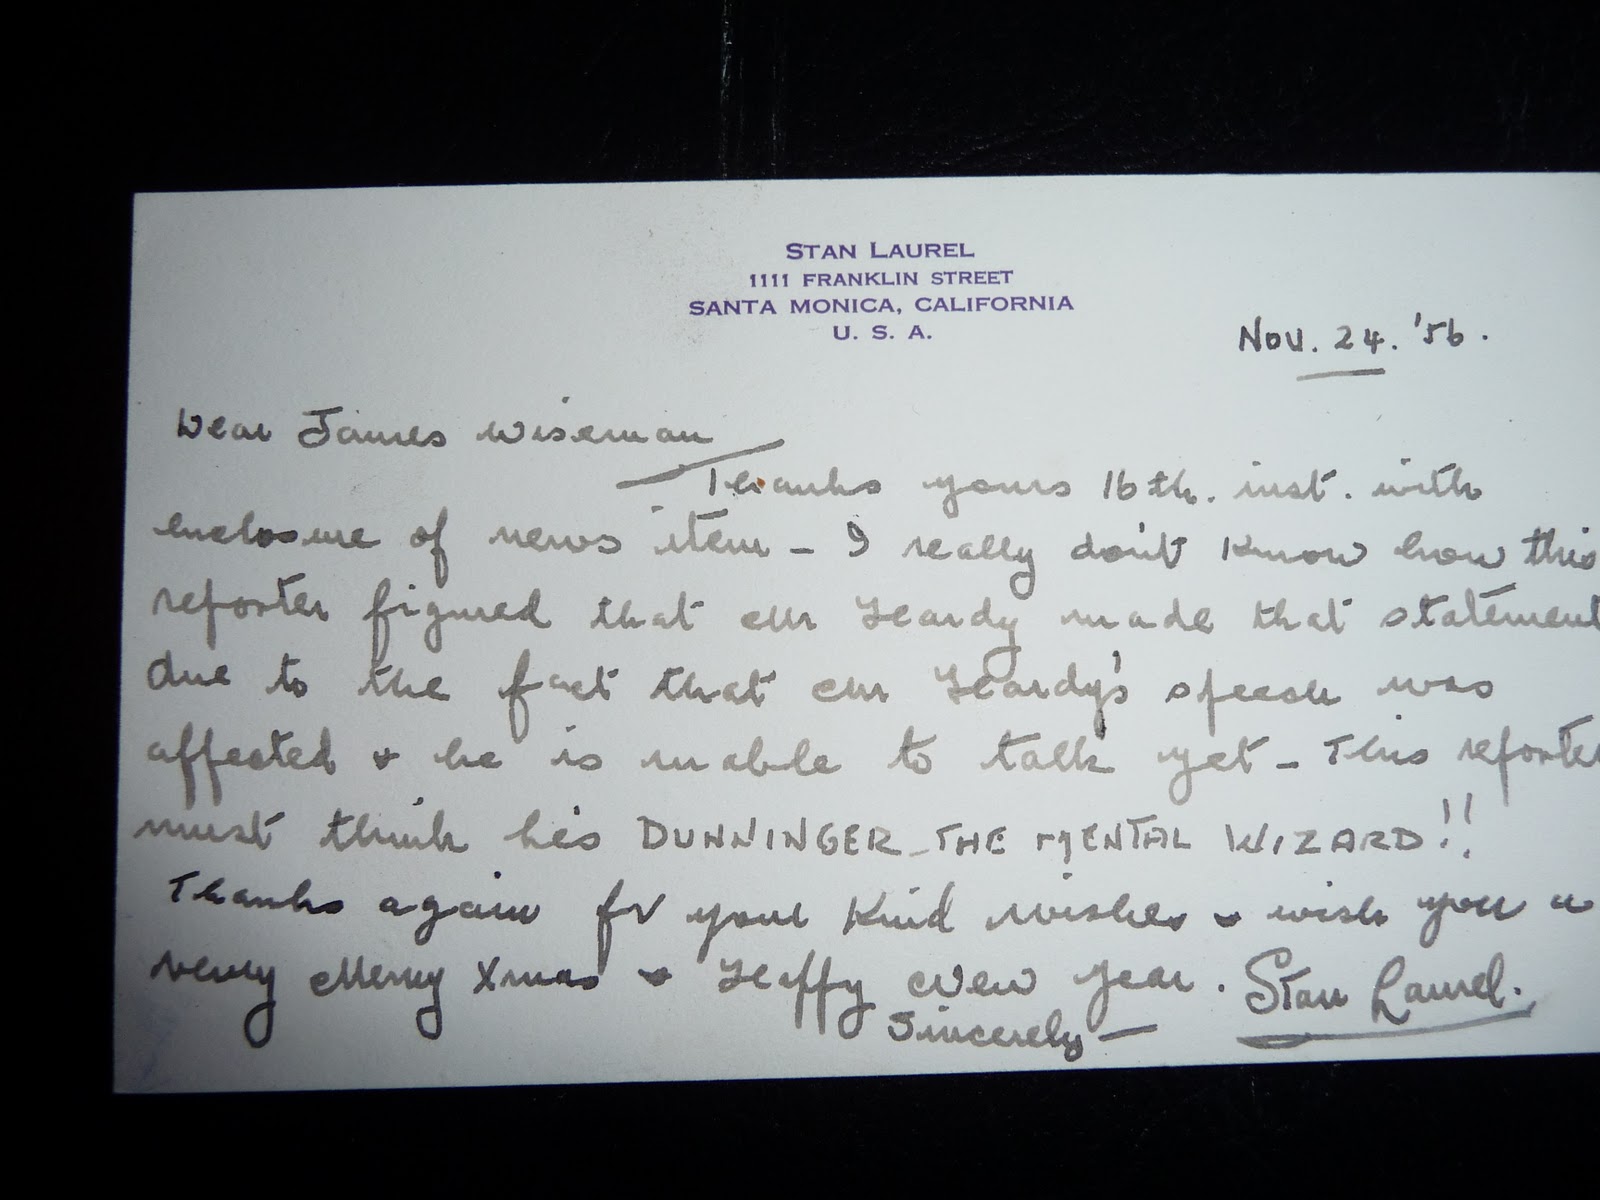 STAN LAUREL
1111 FRANKLIN STREET
SANTA MONICA, CALIFORNIA
U. S. A.
Nov. 24. '56.
Dear James Wiseman
Thanks yours 16th. inst. with
enclosure of news item - I really don't know how this
reporter figured that Mr Hardy made that statement
due to the fact that Mr Hardy's speech was
affected & he is unable to talk yet - This reporter
must think he's DUNNINGER - THE MENTAL WIZARD!!
Thanks again for your kind wishes & wish you a
very Merry Xmas & Happy New Year.
Sincerely -
Stan Laurel.